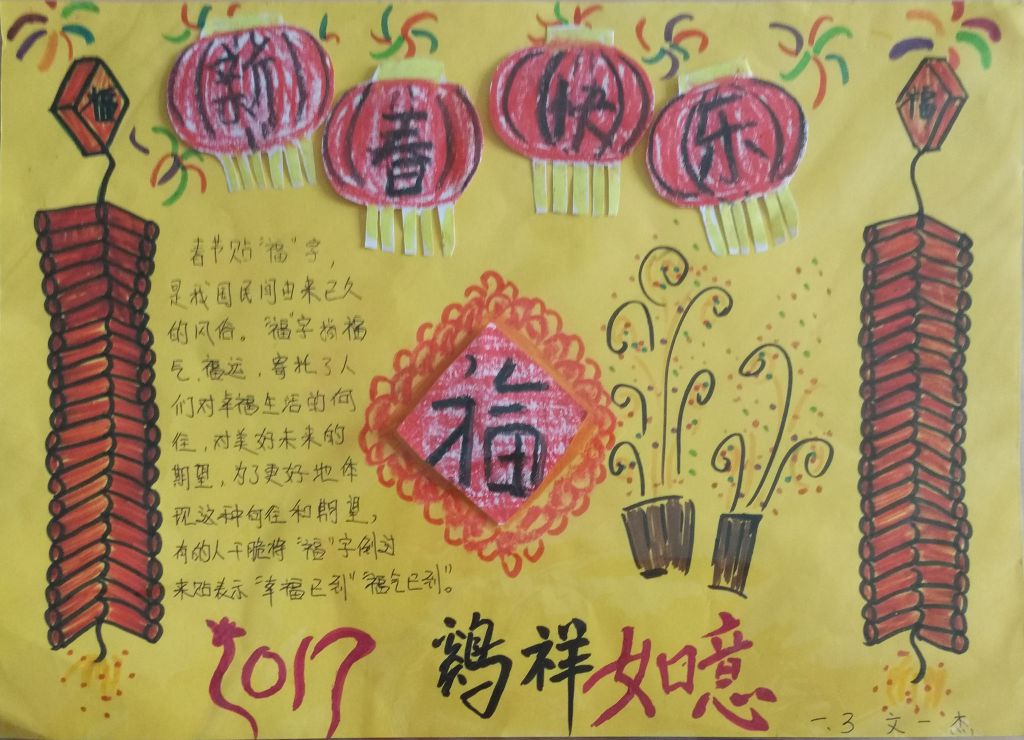 新春快乐
福
福
春节贴“福”字，
是我国民间由来已久
的风俗。“福”字指福
气、福运，寄托了人
们对幸福生活的向
往，对美好未来的
期望，为了更好地体
现这种向往和期望，
有的人干脆将“福”字倒过
来贴表示“幸福已到”“福气已到”。
福
2017 鷄祥如意
一.3 文一杰